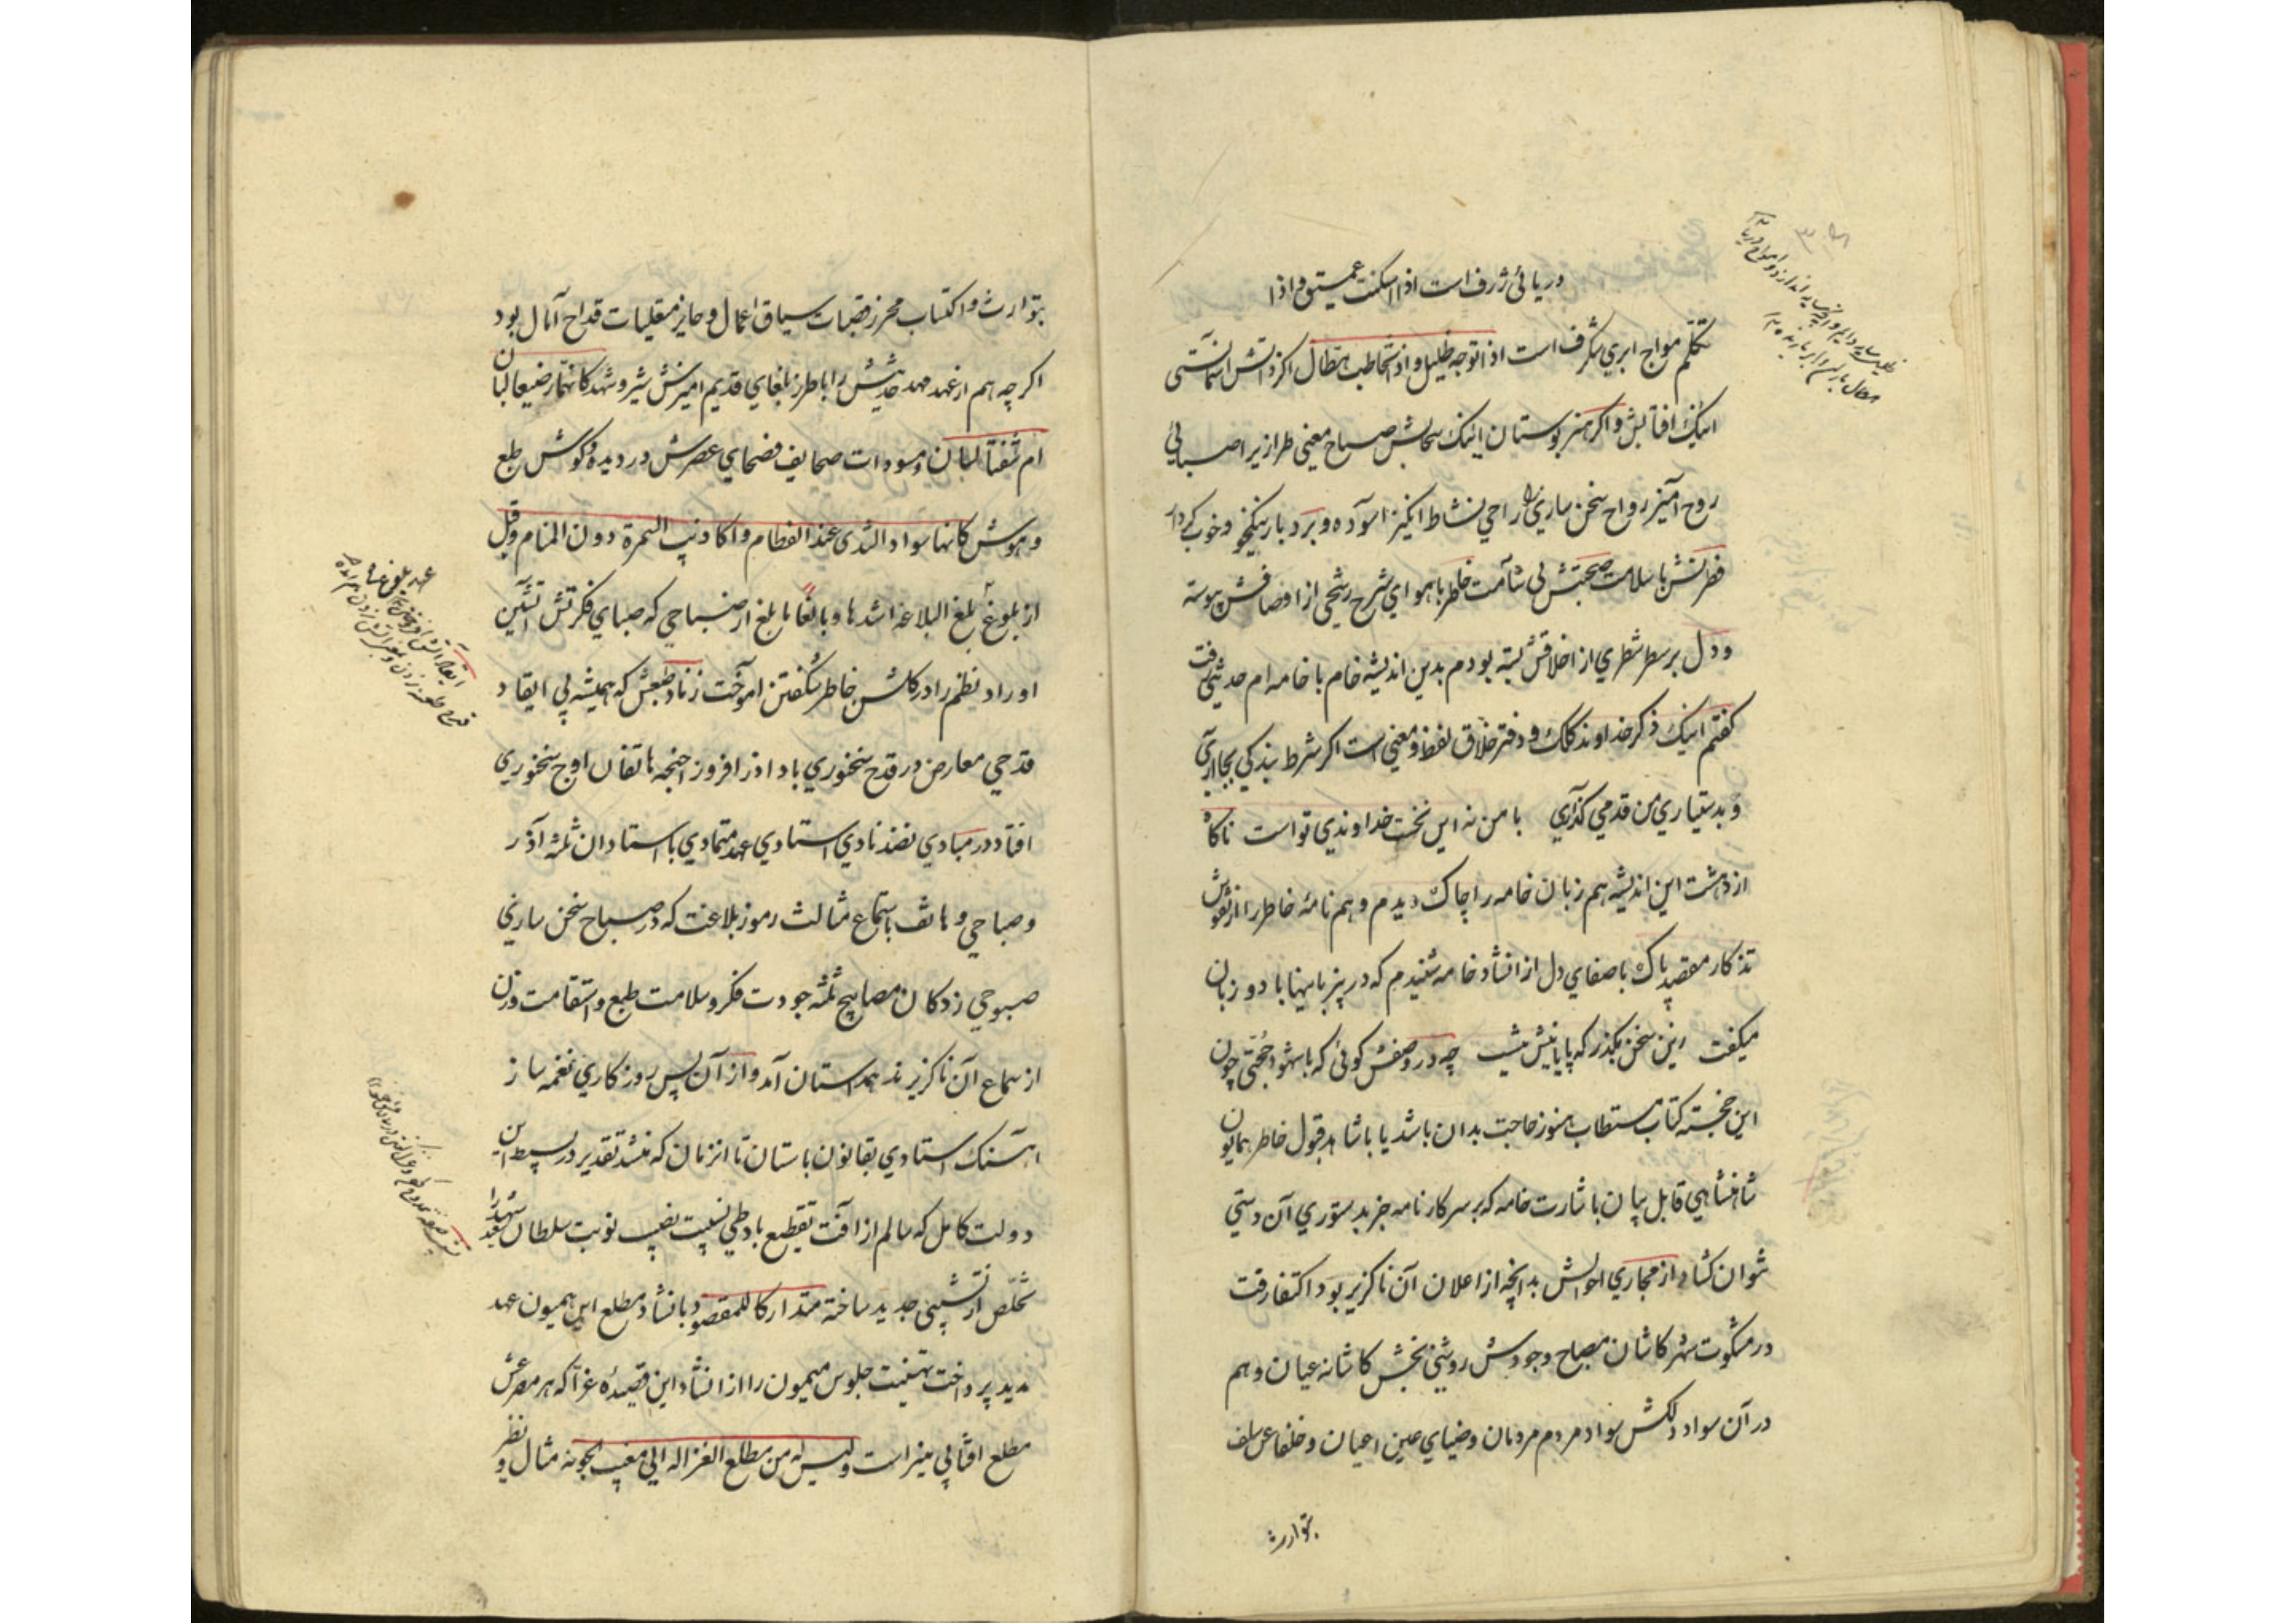 دریائی ژرف است اذا اسکت عمیق و اذا
تکلم مواج ابری شکرف است اذا توجه ظلیل و اذا تخاطب هطال اکر دانش آسمانستی
اینک افتابش و اکر هنر بوستان اینک سحابش صباح معینی طراز پر اصبائی
روح آمیز رواح سخن سازی را راحی نشاط انکیز آسوده و بردبار نیکخو و خوب کردار
فطرتش با سلامت صحبتش بی شآمت خاطر با هوای شرح رشحی از اوصافش پیوسته
و دل بر سطر شطری از اخلاقش بسته بودم بدین اندیشه خام با خامه ام حدیثی رفت
کفتم اینک ذکر خداوند کلک و دفتر خلاق لفظ و معنی است اکر شرط بندکی بجا آری
و بدستیاری من قدمی کذاری با من نه این نخست خداوندی تو است ناکاه
از دهشت این اندیشه هم زبان خامه را چاک دیدم و هم نامه خاطر را از نقوش
تذکار مقصد پاک با صفای دل از انشاد خامه شنیدم که در بی زبانیها با دو زبان
میکفت این سخن بکذر که پایانیش نیست چه در وصفش کوئی که با شهود حجتی چون
این خجسته کتاب مستطاب هنوز حاجت بدان باشد یا با شاهد قبول خاطر همایون
شاهنشاهی قابل بیان با شارت خامه که بر سر کار نامه جز بدستوری آن دستی
نتوان کشاد از مجاری احوالش بدانچه از اعلان آن ناکزیر بود اکتفا رفت
در مشکوت شهر کاشان مصباح وجودش روشنی بخش کاشانه عیان و هم
در آن سواد دلکش سواد مردم مردمان و ضیای عین اعیان و خلفا عن سلف
بتوارث
بتوارث و اکتساب محرز قصبات سباق اعمال و حایز معلیات قداح آمال بود
اکر چه هم از عهد مهد حدیثش را با طرز بلغای قدیم امیزش شیر و شهد کانهما رضیعا لبان
ام شفتا لبان و مسودات صحایف فصحای عصرش در دیده و کوش طبع
و هوش کانها سواد الثدی عند الفطام و اکاذیب السمرة دون المنام و قبل
از بلوغ ابلغ البلاغه اشدها و بالغا ما بلغ از صباحی که صبای فکرتش آتشین
اوراد نظم را در کلشن خاطر شکفتن اموخت زناد طبعش که همیشه بی ایقاد
قدحی معارض در قدح سخنوری باد اذر افروز اخنجه هاتفان اوج سخنوری
افتاد در مبادی نضد نادی استادی عهد متمادی با استادان ثلثه آذر
و صباحی و هاتف باستماع مثالث رموز بلاغت که در صباح سخن سازی
صبوحی زدکان مصابیح ثلثه جودت فکر و سلامت طبع و استقامت وزن
از سماع آن ناکزیرند همداستان آمد و از آن پس روزکاری نغمه ساز
آهنک استادی بقانون باستان تا انزمان که منشد تقدیر در بسیط این
دولت کامل که سالم از آفت تقطیع باد طی نسیب نصیب نوبت سلطان شهید را
تخلص از تشبیبی جدید ساخته متدارکا للمقصود بانشاد مطلع این همیون عهد
مدید پرداخت تهنیت جلوس میمون را از انشاد این قصیده غرا که هر مصرعش
مطلع افتابی منیر است و لیس له من مطلع الغزاله الی مغیب الجونه مثال و نظیر